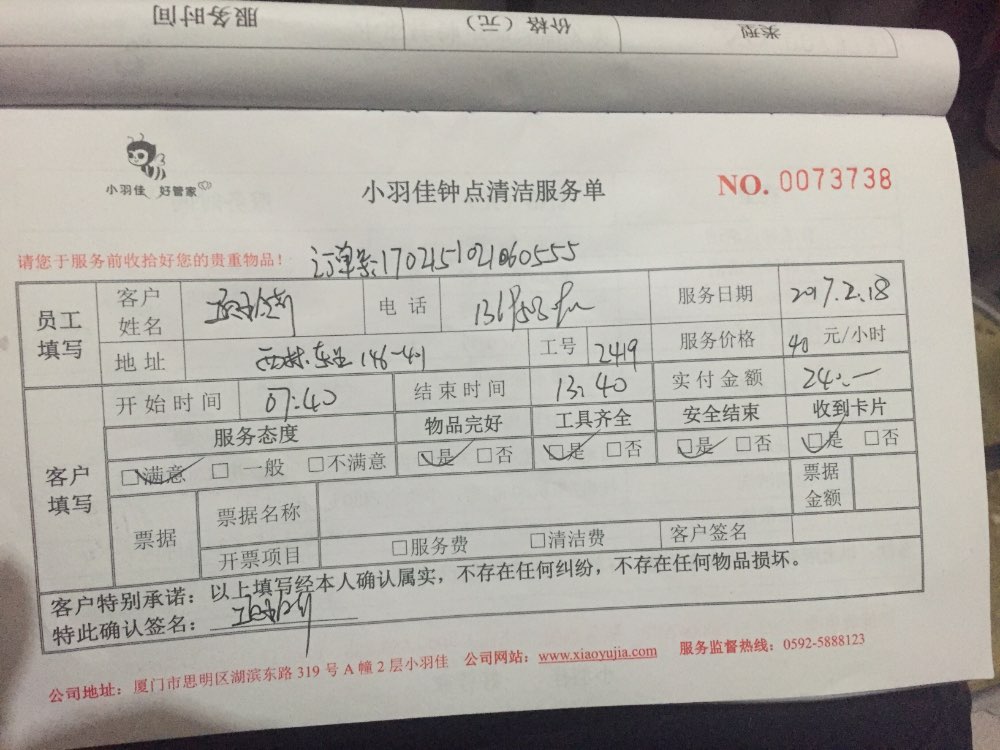 服务时间 价格（元） 类型
小羽佳 好管家
小羽佳钟点清洁服务单
NO. 0073738
请您于服务前收拾好您的贵重物品！ 订单号:170215021060555
员工填写 客户姓名 电话 服务日期 2017.2.18
地址 工号 2419 服务价格 40 元/小时
客户填写 开始时间 07:40 结束时间 13:40 实付金额 240.—
服务态度 物品完好 工具齐全 安全结束 收到卡片
☑满意 □一般 □不满意 ☑是 □否 ☑是 □否 ☑是 □否 ☑是 □否
票据 票据名称 票据金额
开票项目 □服务费 □清洁费 客户签名
客户特别承诺：以上填写经本人确认属实，不存在任何纠纷，不存在任何物品损坏。
特此确认签名：
公司地址：厦门市思明区湖滨东路 319 号 A 幢 2 层小羽佳 公司网站：www.xiaoyujia.com 服务监督热线：0592-5888123